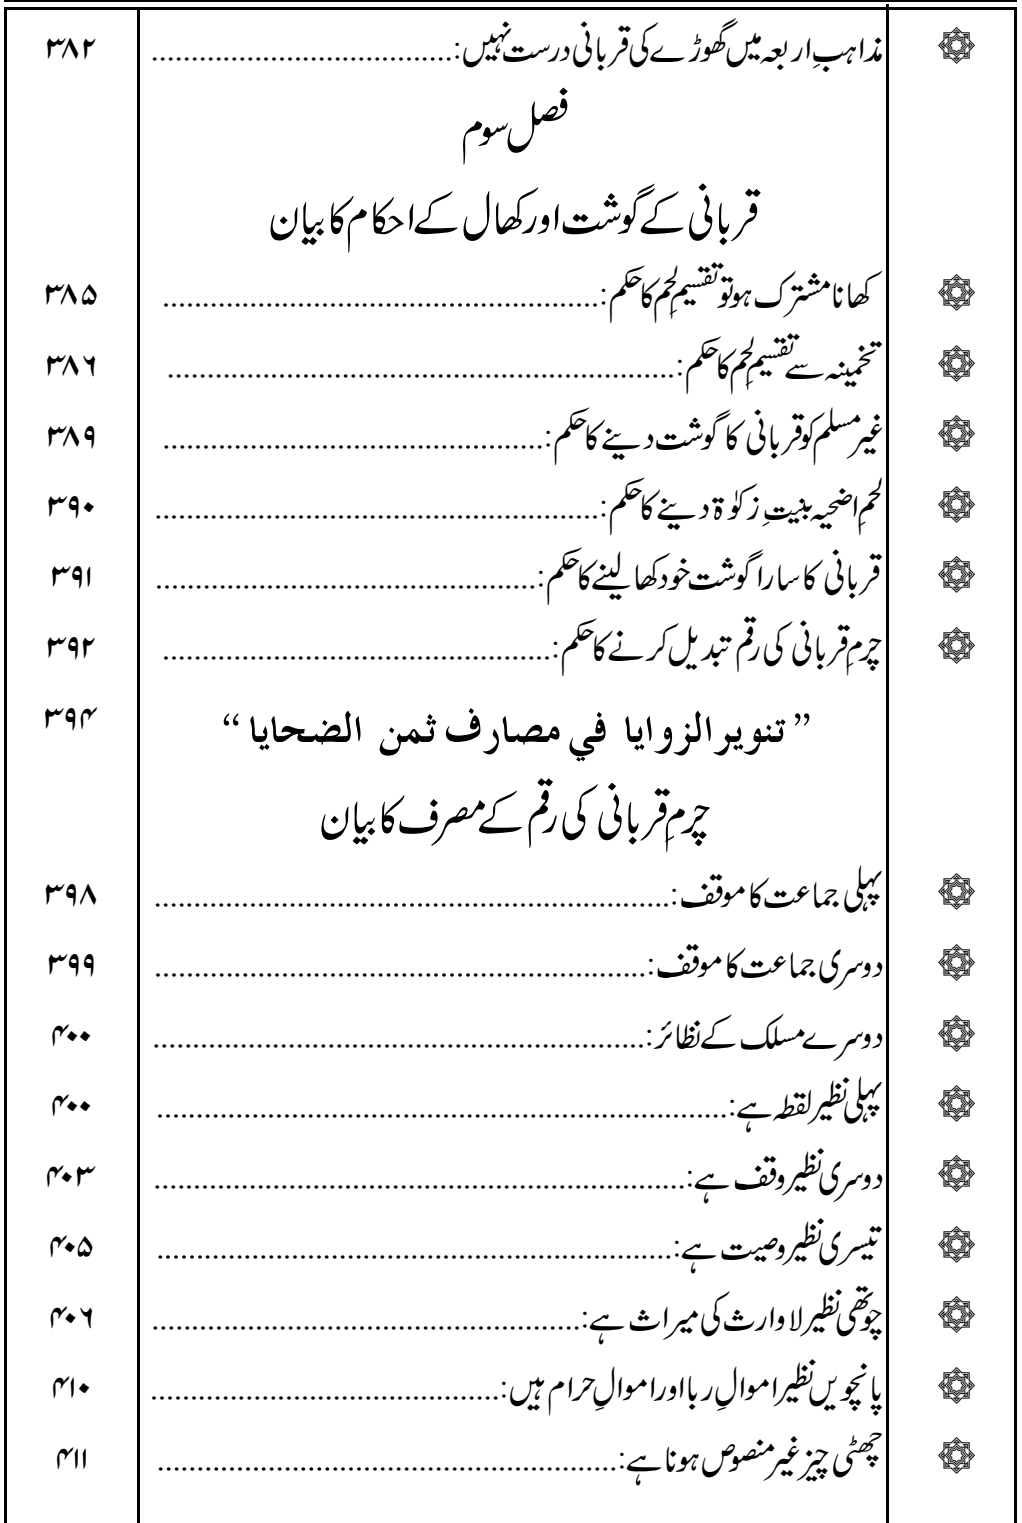 مذاہبِ اربعہ میں گھوڑے کی قربانی درست نہیں:...................................... ۳۸۲
فصل سوم
قربانی کے گوشت اور کھال کے احکام کا بیان
کھانا مشترک ہو تو تقسیمِ لحم کا حکم:....................................................... ۳۸۵
تخمینہ سے تقسیمِ لحم کا حکم:................................................................ ۳۸۶
غیر مسلم کو قربانی کا گوشت دینے کا حکم:................................................ ۳۸۹
لحمِ اضحیہ بنیتِ زکوٰۃ دینے کا حکم:........................................................ ۳۹۰
قربانی کا سارا گوشت خود کھا لینے کا حکم:................................................ ۳۹۱
چرمِ قربانی کی رقم تبدیل کرنے کا حکم:................................................. ۳۹۲
” تنوير الزوايا في مصارف ثمن الضحايا “ ۳۹۴
چرمِ قربانی کی رقم کے مصرف کا بیان
پہلی جماعت کا موقف:................................................................. ۳۹۸
دوسری جماعت کا موقف:.............................................................. ۳۹۹
دوسرے مسلک کے نظائر:.............................................................. ۴۰۰
پہلی نظیر لقطہ ہے:........................................................................ ۴۰۰
دوسری نظیر وقف ہے:................................................................... ۴۰۳
تیسری نظیر وصیت ہے:................................................................. ۴۰۵
چوتھی نظیر لاوارث کی میراث ہے:...................................................... ۴۰۶
پانچویں نظیر اموالِ ربا اور اموالِ حرام ہیں:............................................ ۴۱۰
چھٹی چیز غیر منصوص ہونا ہے:.......................................................... ۴۱۱